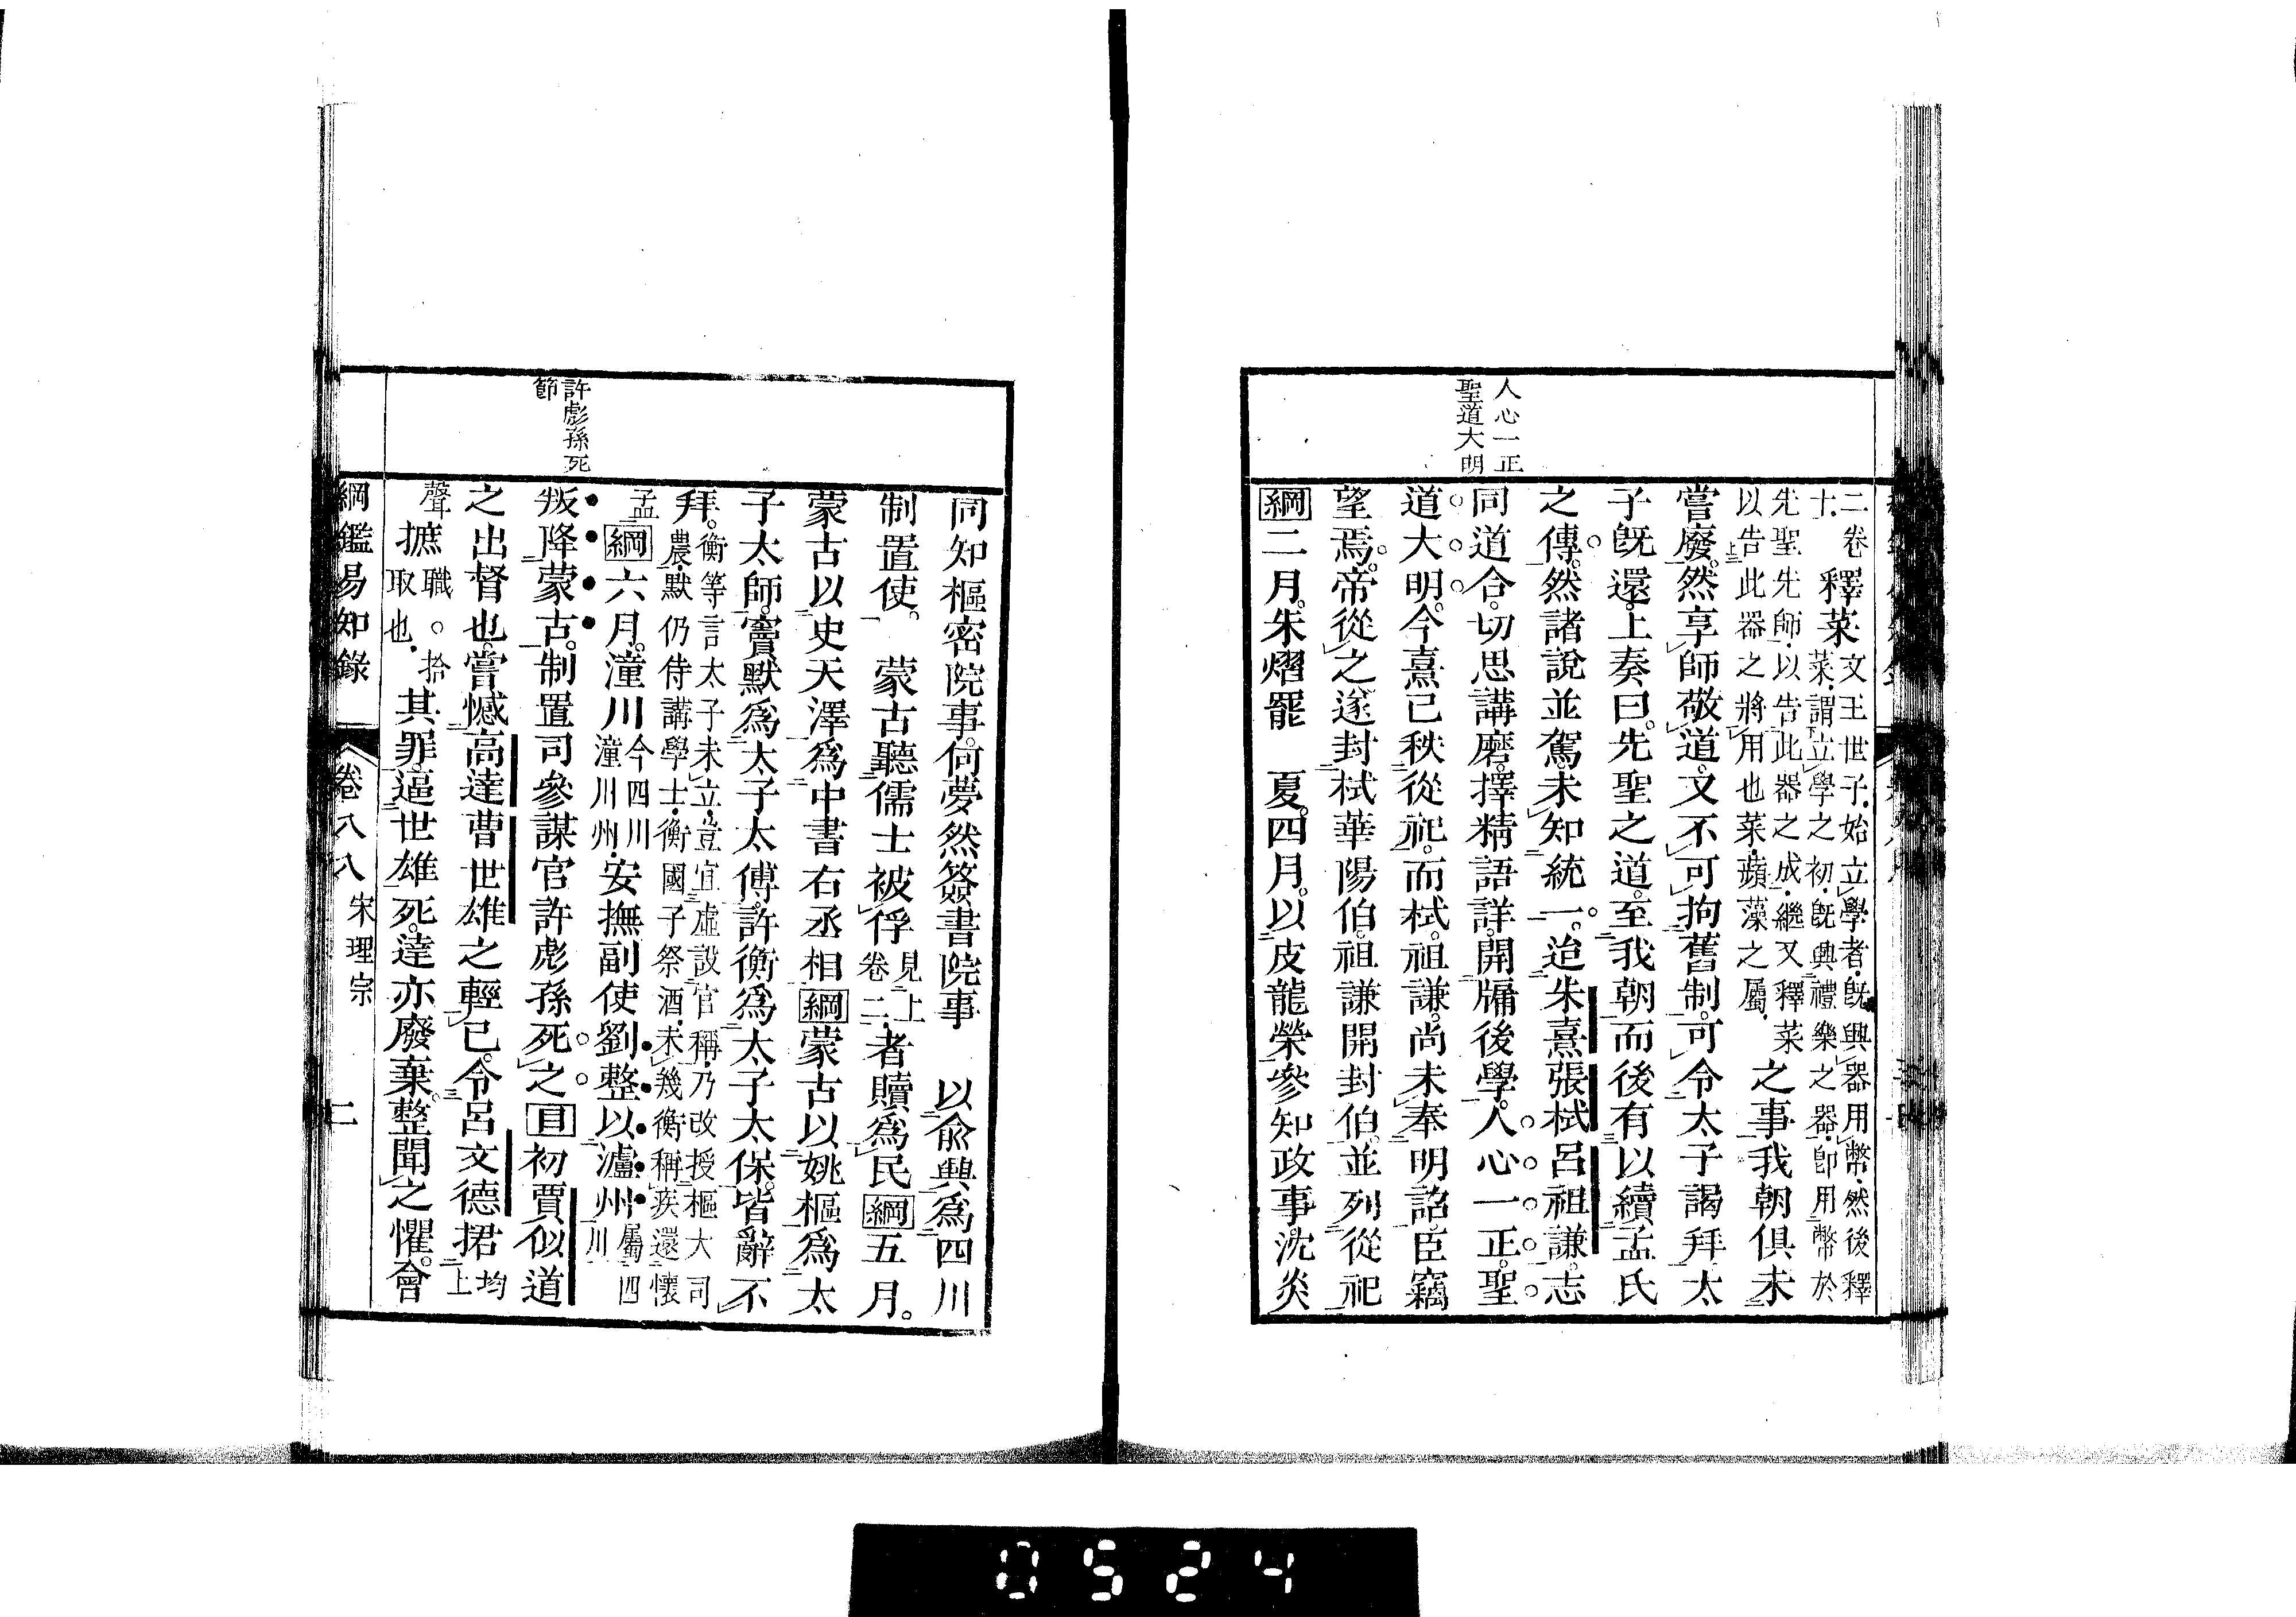 人心一正
聖道大明
二卷釋菜文王世子始立學者既興器用幣然後釋
十菜謂立學之初既興禮樂之器卽用幣於
先聖先師以告此器之成繼又釋菜
以告此器之將用也菜蘋藻之屬之事我朝俱未
嘗廢然享師敬道又不可拘舊制可令太子謁拜太
子既還上奏曰先聖之道至我朝而後有以續孟氏
之傳然諸說並駕未知統一迨朱熹張栻呂祖謙志
同道合切思講磨擇精語詳開牖後學人心一正聖
道大明今熹已秩從祀而栻祖謙尚未奉明詔臣竊
望焉帝從之遂封栻華陽伯祖謙開封伯並列從祀
綱二月朱熠罷 夏四月以皮龍榮參知政事沈炎
許彪孫死
節
同知樞密院事何夢然簽書院事 以俞興爲四川
制置使 蒙古聽儒士被俘見上卷二者贖爲民綱五月
蒙古以史天澤爲中書右丞相綱蒙古以姚樞爲太
子太師竇默爲太子太傅許衡爲太子太保皆辭不
拜衡等言太子未立豈宜虛設官稱乃改授樞大司
農默仍侍講學士衡國子祭酒未幾衡稱疾還懷
孟綱六月潼川今四川潼川州安撫副使劉整以瀘州屬四川
叛降蒙古制置司參謀官許彪孫死之目初賈似道
之出督也嘗憾高達曹世雄之輕己令呂文德捃均上
聲摭職。拾取也其罪逼世雄死達亦廢棄整聞之懼會
綱鑑易知錄 卷八八 宋理宗 二
0524